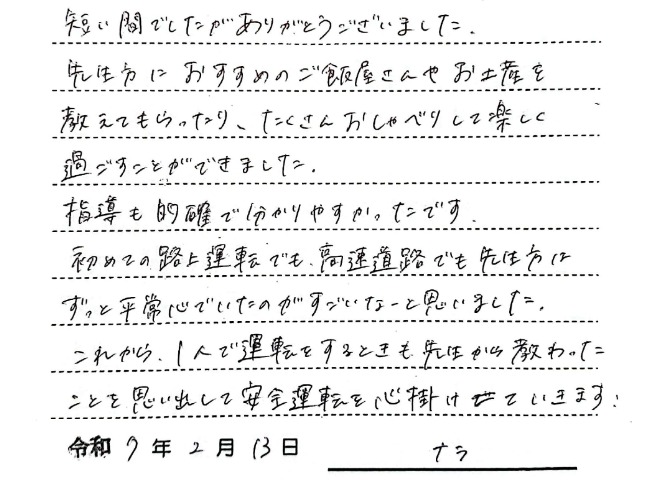 短い間でしたがありがとうございました。
先生方におすすめのご飯屋さんやお土産を
教えてもらったり、たくさんおしゃべりして楽しく
過ごすことができました。
指導も的確で分かりやすかったです。
初めての路上運転でも、高速道路でも先生方は
ずっと平常心でいたのがすごいなーと思いました。
これから、1人で運転をするときも先生から教わった
ことを思い出して安全運転を心掛けていきます!
令和7年2月13日 ナラ